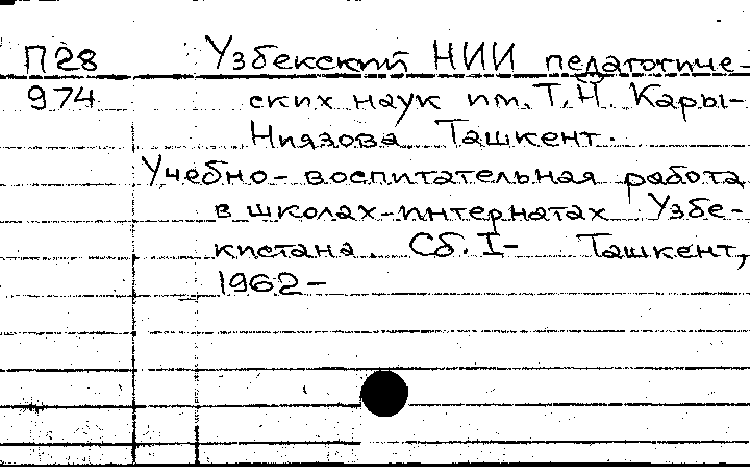 П28 Узбекский НИИ педагогиче-
974 ских наук им. Т.Н. Кары-
Ниязова Ташкент.
Учебно-воспитательная работа
в школах-интернатах Узбе-
кистана. Сб. I- Ташкент,
1962-